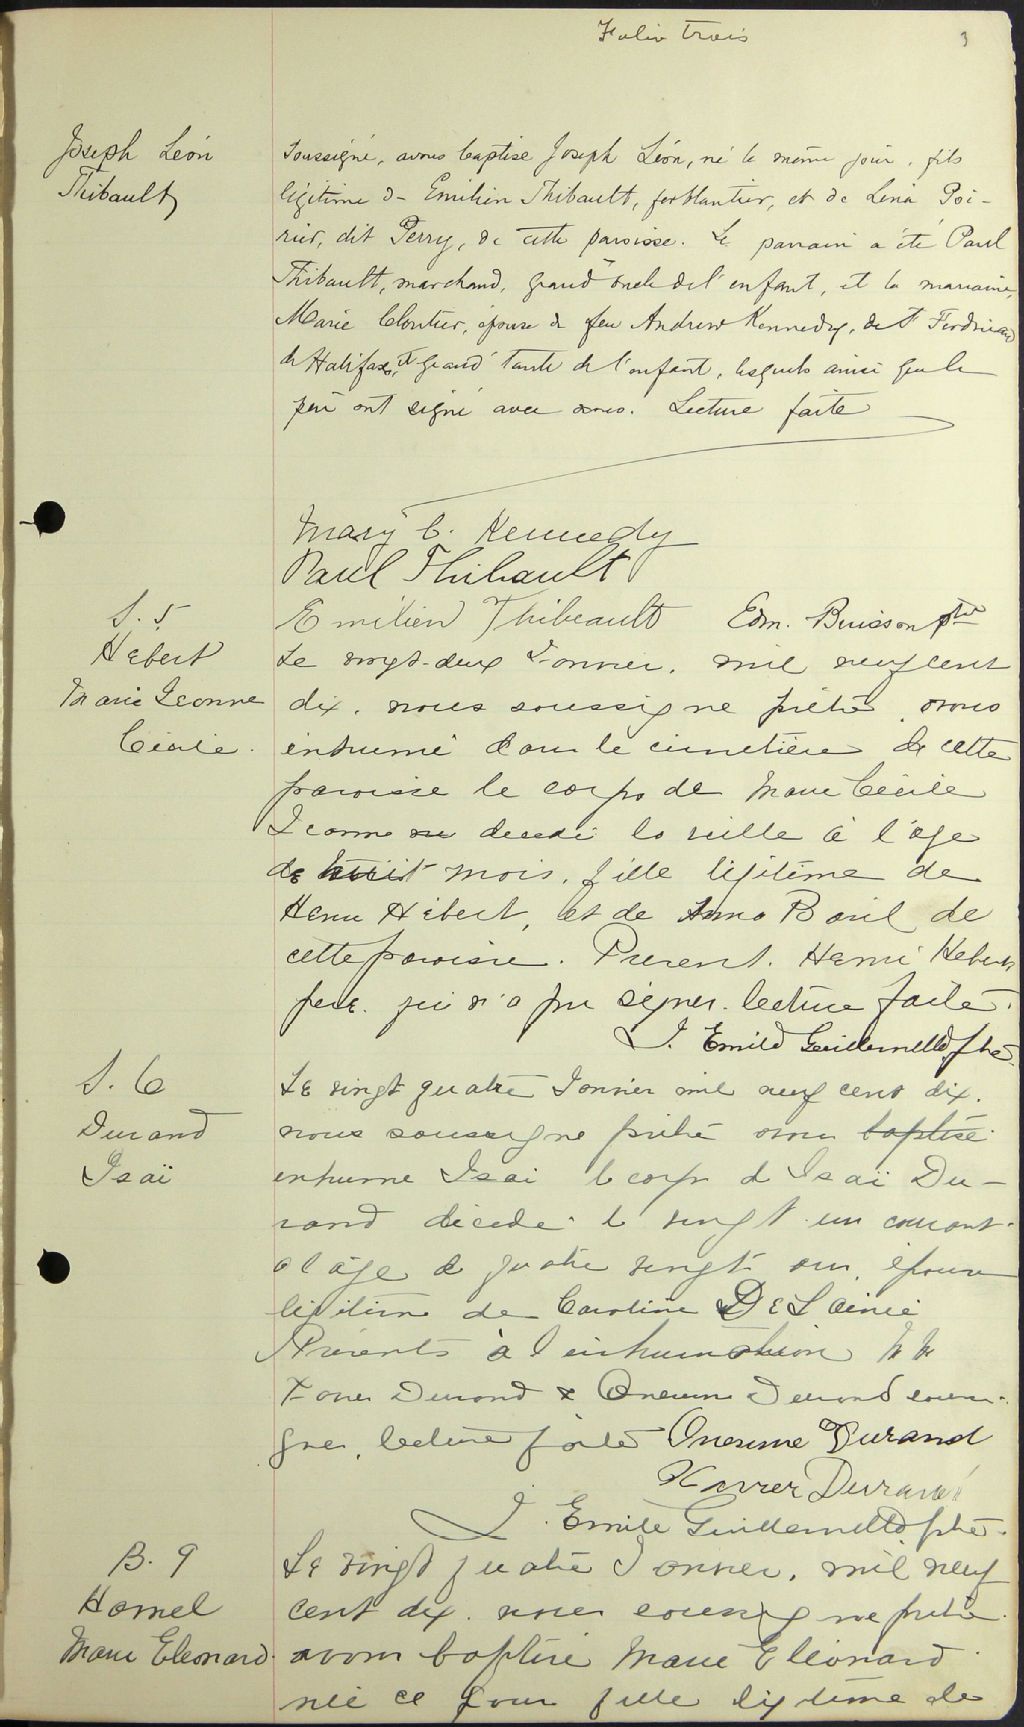 Folio trois
3
Joseph Léon
Thibault
soussigné, avons baptisé Joseph Léon, né le même jour, fils
légitime de Emilien Thibault, ferblantier, et de Lena Poi-
rier, dit Perry, de cette paroisse. Le parrain a été Paul
Thibault, marchand, grand'oncle de l'enfant, et la marraine,
Marie Cloutier, épouse de feu Andrew Kennedy, de St Ferdinand
de Halifax, et grand'tante de l'enfant, lesquels ainsi que le
père ont signé avec nous. Lecture faite
Mary C. Kennedy
Paul Thibault
Emilien Thibeault Edm. Buisson ptre
S. 5
Hébert
Marie Jeanne
Cécile.
Le vingt-deux Janvier, mil neuf cent
dix, nous soussigne prêtre avons
inhumé dans le cimetière de cette
paroisse le corps de Marie Cécile
Jeanne décédé la veille à l'age
de huit mois, fille légitime de
Henri Hébert, et de Anna Baril de
cette paroisse. Présent. Henri Hebert
père. qui n'a pu signer. lecture faite.
J. Emile Guillemette ptre.
S. 6
Durand
Isaï
Le vingt quatre Janvier mil neuf cent dix.
nous soussigne prêtre avons baptisé
inhume Isai le corps d Isaï Du-
rand décédé le vingt un courant
a l'âge de quatre vingt ans, époux
légitime de Caroline
Présents à l'inhumation MM
Xavier Durand & Onesime Durand soussi-
gnes, lecture faite Onesime Durand
Xavier Durand
J. Emile Guillemette ptre.
B. 9
Hamel
Marie Eleonard
Le vingt quatre Janvier, mil neuf
cent dix. nous soussigne prêtre
avons baptisé Marie Eléonard
née ce jour fille légitime de